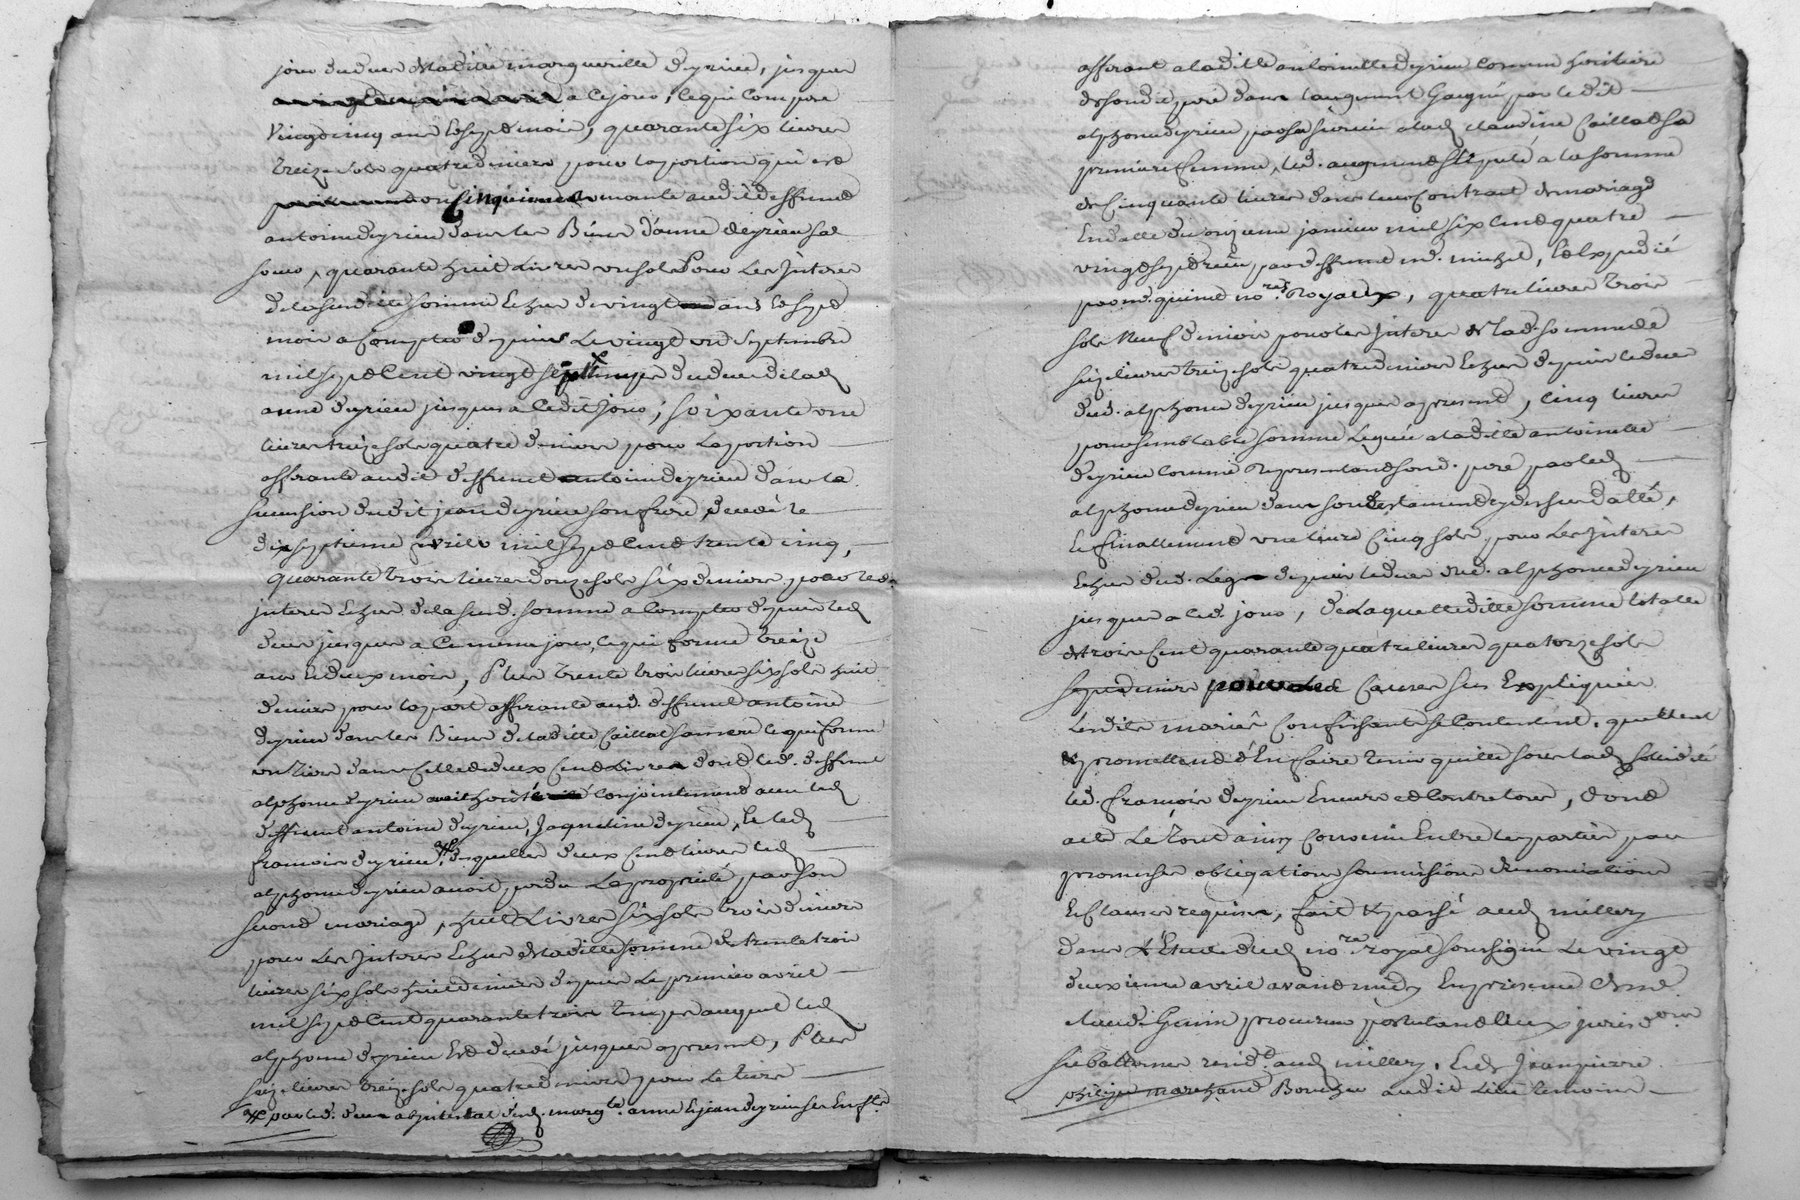 jour du deces de ladite margueritte deyrieu, jusques
a ce jour, ce qui compose
vingt cinq ans et sept mois, quarante six livres
treize sols quatre deniers pour la portion qui est
cinquieme audit deffunt
antoine deyrieu dans les Biens d'anne deyrieu sa
soeur, quarante huit Livres un sols Pour Les Interes
de la susditte somme Echus de vingt ans et sept
mois a Compter depuis Le vingt un Septembre
mil sept Cent vingt sept du deces de lad
anne deyrieu jusques a Cedit jour, soixante une
livres treize sols quatre deniers pour La portion
afferante audit deffunt antoine deyrieu dans la
succession dudit jean deyrieu son frere, decedé le
dix septieme mil sept Cent trente cinq,
quarante trois livres douze sols six deniers pour les
interes Echus de la susd. somme a Compter depuis led
deces jusques a Ce meme jour, ce qui forme treize
ans et deux mois, Plus trente trois livres six sols huit
deniers pour la part afferante aud. deffunt antoine
deyrieu dans les Biens de ladite Caillat sa mere ce qui forme
un tiers dans Celle de deux Cent Livres dont led. deffunt
alphonse deyrieu avoit herité conjointement avec led
deffunt antoine deyrieu, Jaqueline deyrieu, Et led
francois deyrieu # desquelles deux Cent livres led
alphonse deyrieu avoit perdu La proprieté par son
second mariage, huit Livres six sols trois deniers
pour Les Interes Echus de ladite somme de trente trois
livres six sols huit deniers depuis Le premier avril
mil sept Cent quarante trois temps auquel led
alphonse deyrieu Est decedé jusques a present, Plus
seize livres treize sols quatre deniers pour Le tiers
# par led. deces abintestat desd. margte. anne Et jean deyrieu ses Enfts.
afferant a ladite antoinette deyrieu Comme heritiere
de sondit pere dans l'augment Gagné par ledit
alphonse deyrieu par sa survie a lad claudine Caillat sa
premiere femme, led. augment stipulé a la somme
de Cinquante livres dans leur Contrat de mariage
En datte du onzieme janvier mil six Cent quatre
vingt sept reçu par deffunt me. michel, Et Expedié
par me. quinet nores Royaux, quatre livres trois
sols Neuf deniers pour les Interes de lad. somme de
seize livres treize sols quatre deniers Echus depuis le deces
dud. alphonse deyrieu jusques a present, Cinq livres
pour semblable somme Leguée a ladite antoinette
deyrieu Comme Representant sond. pere par led
alphonse deyrieu dans son testament cy dessus datté,
Et finallement une livre Cinq sols, pour Les Interes
Echus dud. Legs depuis le deces dud. alphonse deyrieu
jusques a ced. jour, de Laquelle ditte somme totalle
de trois Cent quarante quatre livres quatorze sols
sept deniers pour les Causes sus Expliquées
Lesdits mariés Confessants se Contentent, quittent
et promettent d'En faire tenir quitte sous lad solidité
led. francois deyrieu Envers et Contre tous, dont
acte Le tout ainsy Convenu Entre les parties par
promesses obligations soumissions renonciations
Et Clauses requises, fait et passé aud millery
dans L'Etude dud nore. royal soussigné Le vingt
deuxieme avril avant midy En presence de me
claude Genin procureur postulant Eux jurisdons.
subalternes residt. aud millery, Et Jean pierre
marchand Boucher audit Lieu temoins